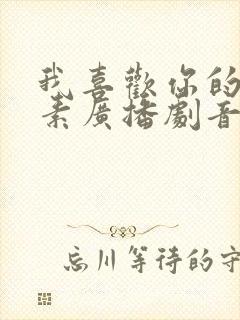 我喜歡你的
素廣播劇音
忘川等待的守